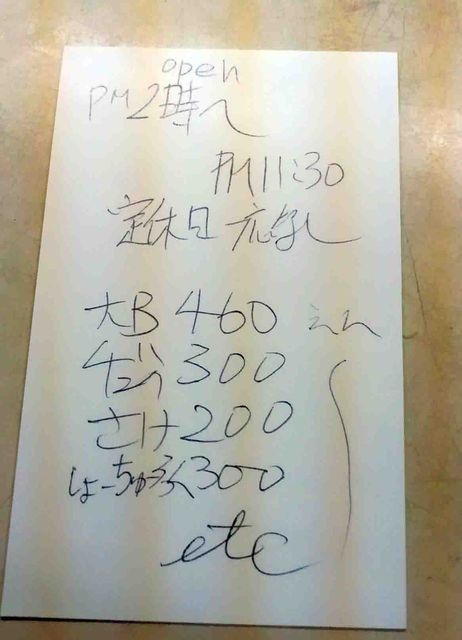 open
PM2時〜
PM11:30
定休日 なし
大B 460 えん
300
さけ200
しょーちゅう300
etc